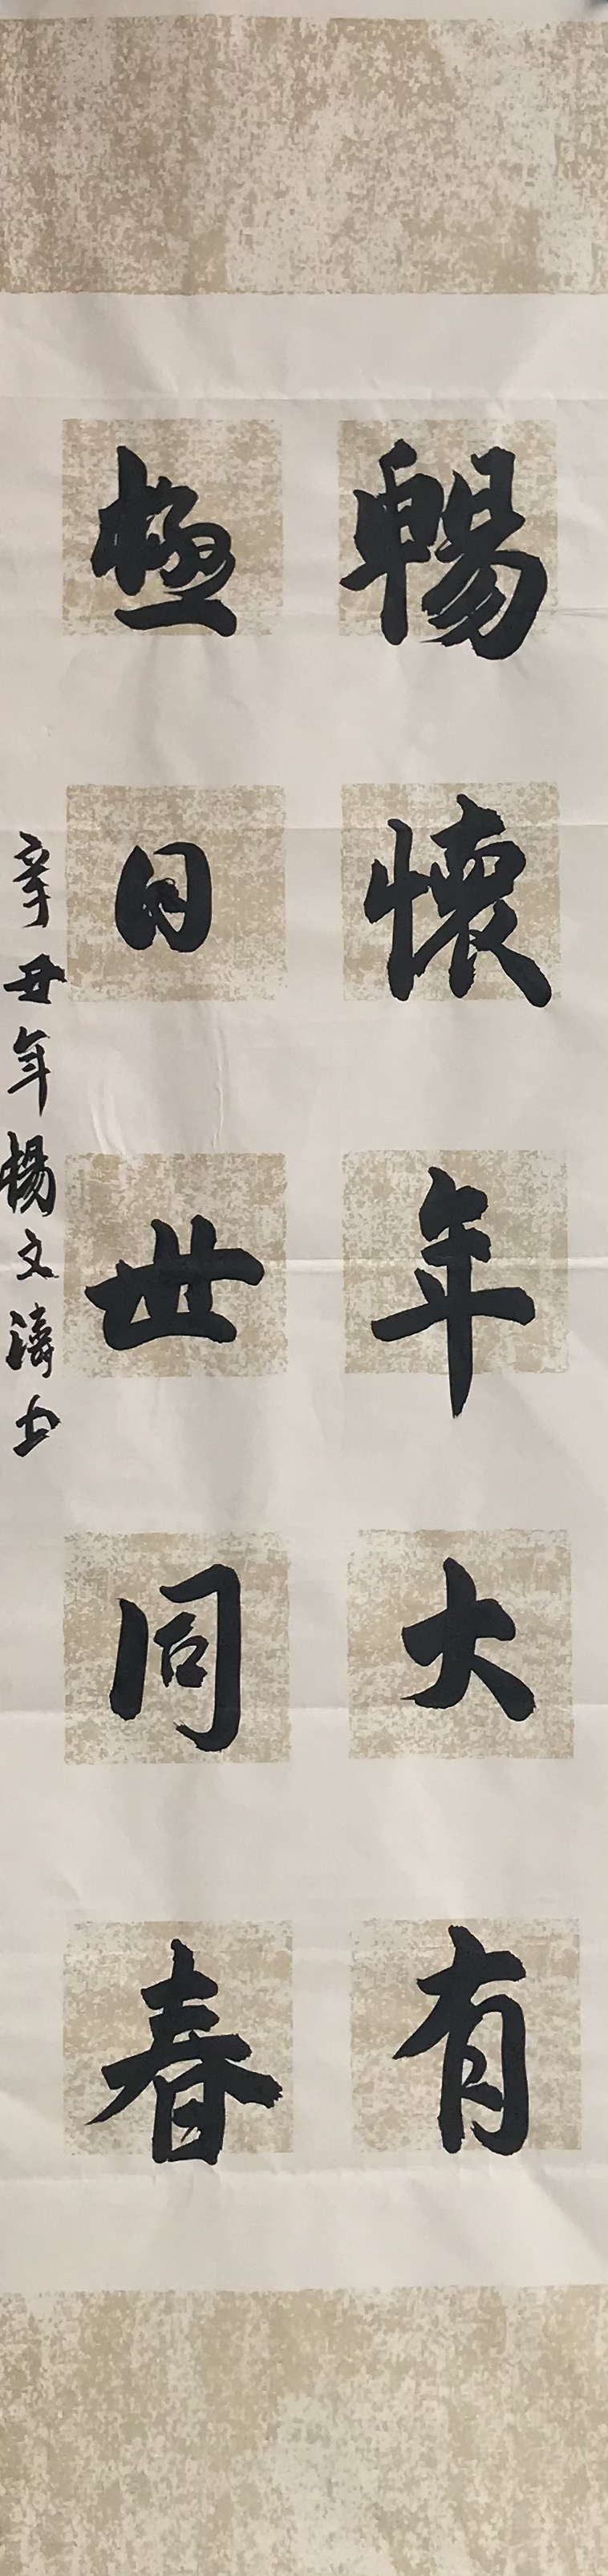 暢懷年大有
極目世同春
辛丑年楊文濤书